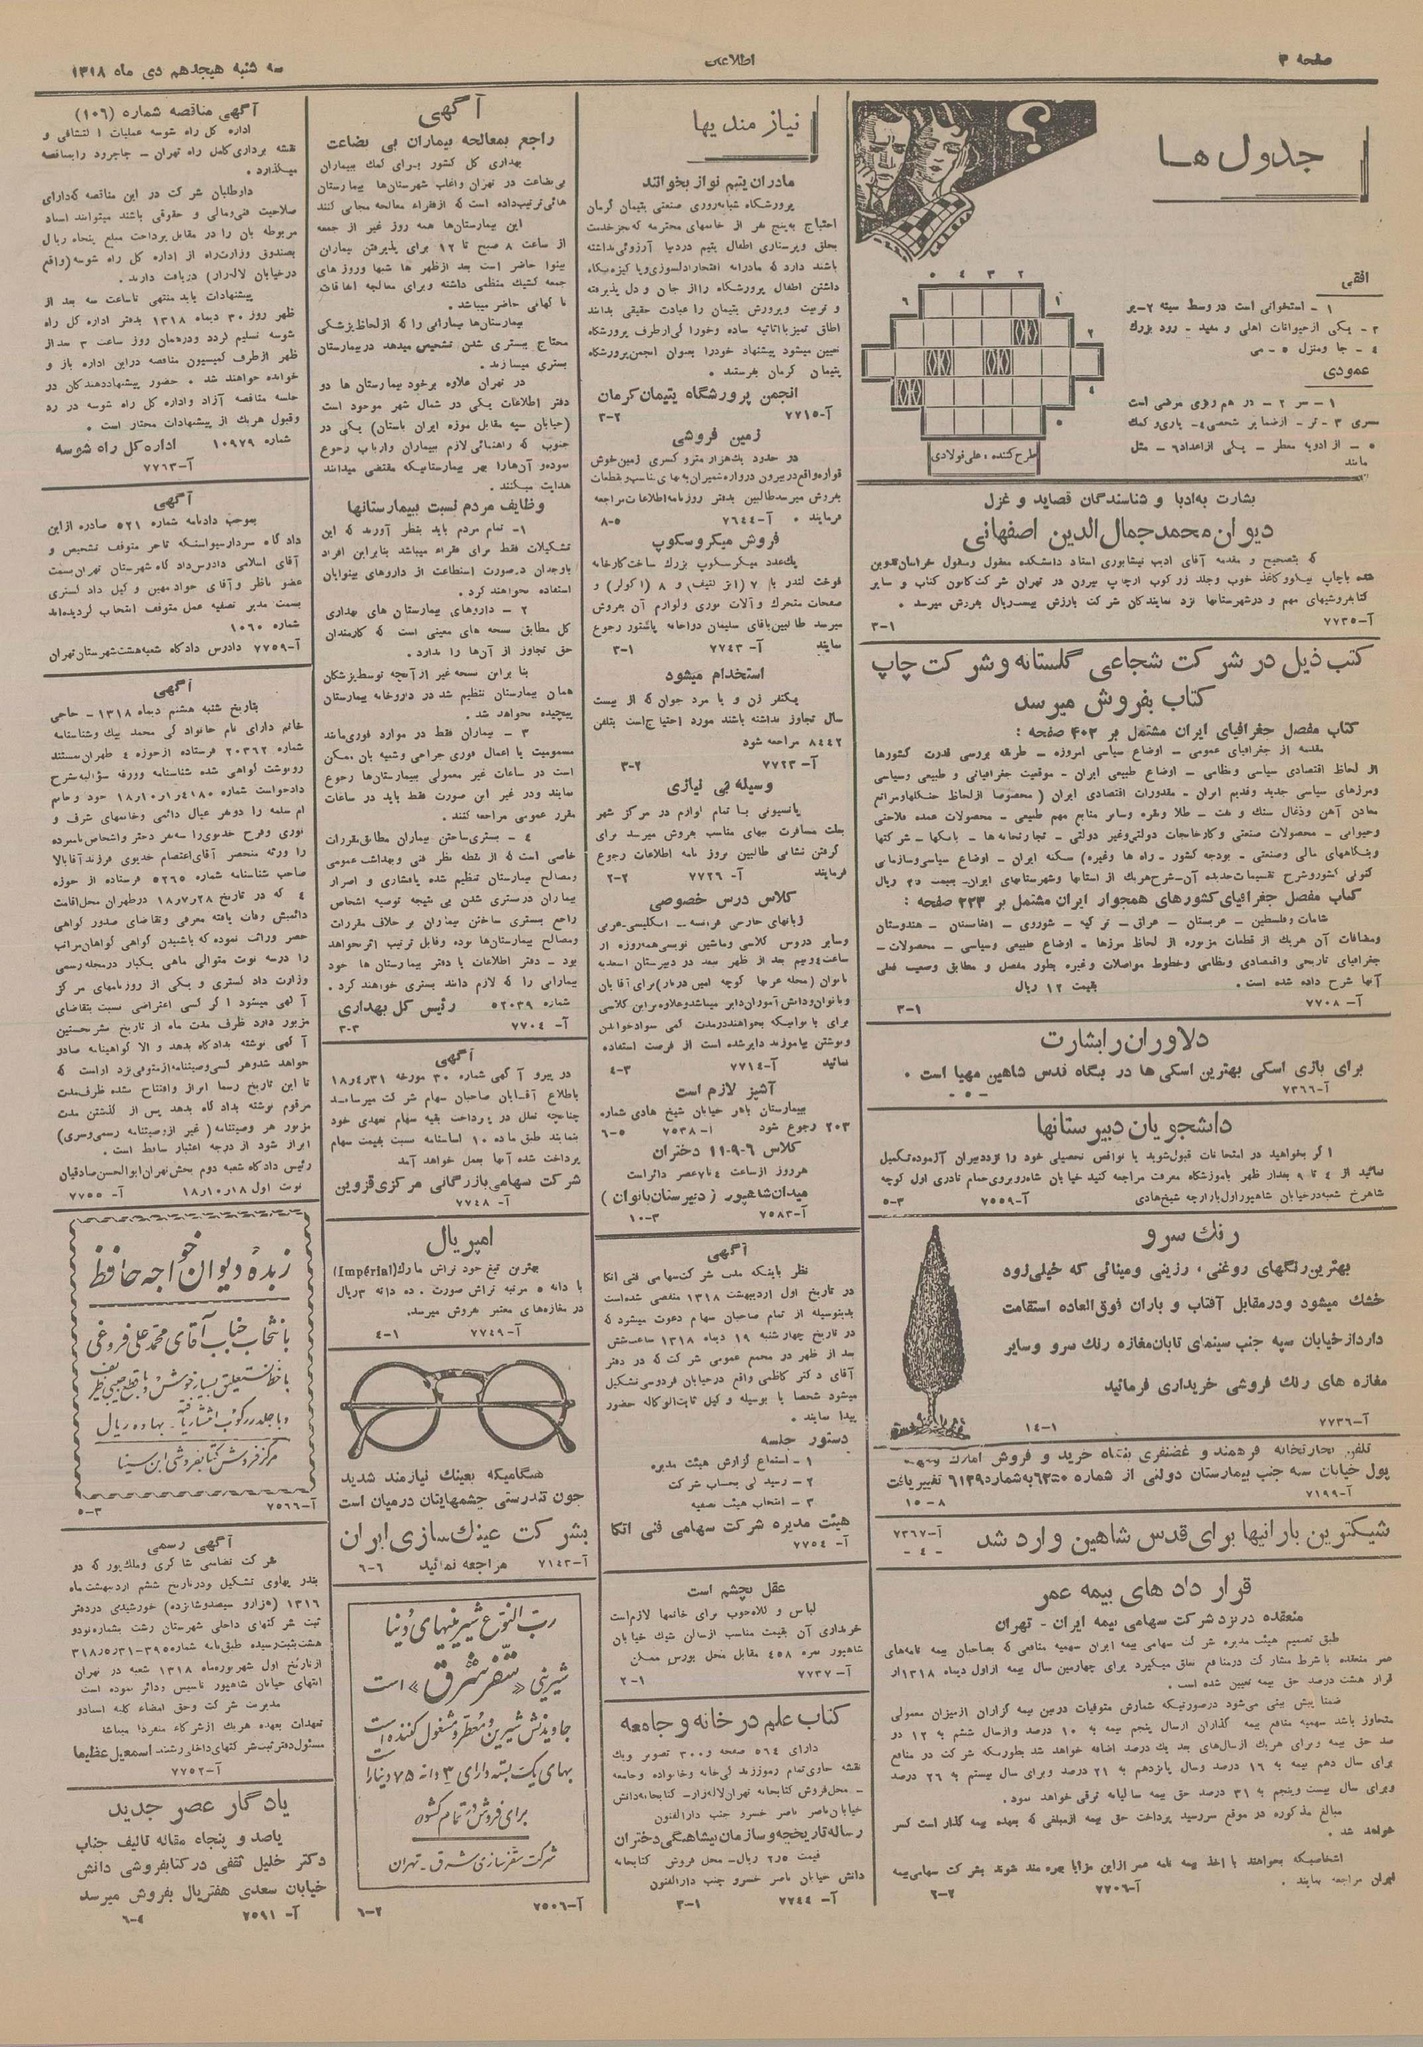 صفحه ۳
اطلاعات
سه شنبه هیجدهم دی ماه ۱۳۱۸
جدول ها
افقی
۱ - استخوانی است در وسط سینه ۲- بر
۳ - یکی از حیوانات اهلی و مفید - رود بزرك
۴ - جا و منزل ۵ - می
عمودی
۱ - سر ۲ - در هم ریزی مرضی است
مسری ۳ - تر - از ضمایر شخصی ۴ - یاری و کمك
۵ - از ادویه معطر - یکی از اعداد ۶ - مثل
مانند
طرح کننده، علی فولادی
بشارت به ادبا و شناسندگان قصاید و غزل
دیوان محمد جمال الدین اصفهانی
که بتصحیح و مقدمه آقای ادیب نیشابوری استاد دانشکده معقول و منقول خراسان تدوین
شده با چاپ نیکو و کاغذ خوب و جلد زر کوب از چاپ بیرون در تهران شرکت کانون کتاب و سایر
کتابفروشیهای مهم و در شهرستانها نزد نمایندگان شرکت بارزش بیست ریال بفروش میرسد .
آ-۷۷۳۵ ۳-۱
کتب ذیل در شرکت شجاعی گلستانه و شرکت چاپ
کتاب بفروش میرسد
کتاب مفصل جغرافیای ایران مشتمل بر ۴۰۳ صفحه :
مقدمه از جغرافیای عمومی - اوضاع سیاسی امروزه - طریقه بررسی قدرت کشورها
از لحاظ اقتصادی سیاسی و نظامی - اوضاع طبیعی ایران - موقعیت جغرافیائی و طبیعی و سیاسی
و مرزهای سیاسی جدید و قدیم ایران - مقدورات اقتصادی ایران ( مخصوصا از لحاظ جنگلها و مراتع
معادن آهن و ذغال سنك و نفت - طلا و نقره و سایر منابع مهم طبیعی - محصولات عمده فلاحتی
و حیوانی - محصولات صنعتی و کارخانجات دولتی و غیر دولتی - تجارتخانه ها - بانکها - شرکتها
و بنگاههای مالی و صنعتی - بودجه کشور - راه ها و غیره) سکنه ایران - اوضاع سیاسی و سازمانی
کنونی کشور و شرح تقسیمات جدیده آن - شرح هریك از استانها و شهرستانهای ایران - بقیمت ۲۰ ریال
کتاب مفصل جغرافیای کشورهای همجوار ایران مشتمل بر ۲۲۳ صفحه :
شامات و فلسطین - عربستان - عراق - ترکیه - شوروی - افغانستان - هندوستان
و مضافات آن هریك از قطعات مزبوره از لحاظ مرزها - اوضاع طبیعی و سیاسی - محصولات -
جغرافیای تاریخی و اقتصادی و نظامی و خطوط مواصلات و غیره بطور مفصل و مطابق وضعیت فعلی
آنها شرح داده شده است . بقیمت ۱۲ ریال
آ- ۷۷۰۸ ۳-۱
دلاوران را بشارت
برای بازی اسکی بهترین اسکی ها در بنگاه قدس شاهین مهیا است .
آ-۷۳۶۶ - ۵ -
دانشجویان دبیرستانها
اگر بخواهید در امتحانات قبول شوید یا نواقص تحصیلی خود را نزد دبیران آزموده تکمیل
نمائید از ۴ تا ۹ بعد از ظهر بآموزشگاه معرفت مراجعه کنید خیابان شاه روبروی حمام نادری اول کوچه
شاهرخ شعبه در خیابان شاهپور اول بازارچه شیخ هادی آ-۷۵۵۹ ۵-۳
رنك سرو
بهترین رنگهای روغنی ، رزینی و مینائی که خیلی زود
خشك میشود و در مقابل آفتاب و باران فوق العاده استقامت
دارد از خیابان سپه جنب سینمای تابان مغازه رنك سرو و سایر
مغازه های رنك فروشی خریداری فرمائید
آ-۷۷۳۶ ۱۴-۱
تلفن تجارتخانه فرهمند و غضنفری بنگاه خرید و فروش املاک
پول خیابان سپه جنب بیمارستان دولتی از شماره ۶۲۵۰ به شماره ۶۱۲۹ تغییر یافت
آ-۷۱۹۹ ۱۵-۸
شیکترین بارانیها برای قدس شاهین وارد شد
آ-۷۳۶۷ - ۴ -
قرار داد های بیمه عمر
منعقده در نزد شرکت سهامی بیمه ایران - تهران
طبق تصمیم هیئت مدیره شرکت سهامی بیمه ایران سهمیه منافعی که بصاحبان بیمه نامه های
عمر منعقده با شرط مشارکت در منافع تعلق میگیرد برای چهارمین سال بیمه از اول دیماه ۱۳۱۸ از
قرار هشت درصد حق بیمه تعیین شده است .
ضمناً پیش بینی می شود در صورتیکه شمارش متوفیات در بین بیمه گزاران از میزان معمولی
متجاوز نباشد سهمیه منافع بیمه گذاران از سال پنجم بیمه به ۱۰ درصد و از سال ششم به ۱۲ در
صد حق بیمه و برای هریك از سالهای بعد یك درصد اضافه خواهد شد بطوریکه شرکت در منافع
برای سال دهم بیمه به ۱۶ درصد و سال پانزدهم به ۲۱ درصد و برای سال بیستم به ۲۶ درصد
و برای سال بیست و پنجم به ۳۱ درصد حق بیمه سالیانه ترقی خواهد نمود .
مبالغ مذکوره در موقع سررسید پرداخت حق بیمه از مبلغی که بعهده بیمه گذار است کسر
خواهد شد .
اشخاصیکه بخواهند با اخذ بیمه نامه عمر از این مزایا بهره مند شوند بشرکت سهامی بیمه
ایران مراجعه نمایند . آ-۷۷۰۶ ۲-۲
نیازمندیها
مادران یتیم نواز بخوانند
پرورشگاه شبانه روزی صنعتی یتیمان کرمان
احتیاج به پنج نفر از خانمهای محترمه که بجز خدمت
بخلق و پرستاری اطفال یتیم در دنیا آرزوئی نداشته
باشند دارد که مادرانه افتخار دلسوزی و پاکیزه نگاه
داشتن اطفال پرورشگاه را از جان و دل پذیرفته
و تربیت و پرورش یتیمان را عبادت حقیقی بدانند
اطاق تمیز با اثاثیه ساده و خوراك از طرف پرورشگاه
تعیین میشود پیشنهاد خود را بعنوان انجمن پرورشگاه
یتیمان کرمان بفرستند .
انجمن پرورشگاه یتیمان کرمان
آ-۷۷۱۵ ۳-۲
زمین فروشی
در حدود یك هزار متر و کسری زمین خوش
قواره واقع در بیرون دروازه شمیران به بهای مناسب و بقطعات
بفروش میرسد طالبین بدفتر روزنامه اطلاعات مراجعه
فرمایند . آ-۷۶۴۴ ۸-۵
فروش میکروسکوپ
یك عدد میکرسکوپ بزرك ساخت کارخانه
فوخت لندر با ۷ (ابژ کتیف) و ۸ (اکولر) و
صفحات متحرك و آلات نوری و لوازم آن بفروش
میرسد طالبین بآقای سلیمان دواخانه پاستور رجوع
نمایند آ- ۷۷۴۳ ۳-۱
استخدام میشود
یکنفر زن و یا مرد جوان که از بیست
سال تجاوز نداشته باشند مورد احتیاج است بتلفن
۸۴۴۲ مراجعه شود
آ- ۷۷۲۳ ۳-۲
وسیله بی نیازی
پانسیونی با تمام لوازم در مرکز شهر
بعلت مسافرت ببهای مناسب بفروش میرسد برای
گرفتن نشانی طالبین بروز نامه اطلاعات رجوع
فرمایند آ- ۷۷۲۶ ۲-۲
کلاس درس خصوصی
زبانهای خارجی فرانسه - انگلیسی - عربی
و سایر دروس کلاسی و ماشین نویسی همه روزه از
ساعت ۴ و نیم بعد از ظهر ببعد در دبیرستان اسعدیه
بانوان (محله عربها کوچه امین دربار) برای آقایان
و بانوان و دانش آموزان دایر میباشد و علاوه بر این کلاسی
برای بانوانیکه بخواهند در مدت کمی سواد خواندن
و نوشتن بیاموزند دایر شده است از فرصت استفاده
نمائید آ-۷۷۱۴ ۴-۳
آشپز لازم است
بیمارستان باهر خیابان شیخ هادی شماره
۲۰۳ رجوع شود آ- ۷۵۳۸ ۶-۵
کلاس ۶-۹-۱۱ دختران
هر روز از ساعت ۴ تا ۷ عصر دائر است
میدان شاهپور ( دبیرستان بانوان )
آ-۷۵۸۳ ۱۰-۳
آگهی
نظر باینکه مدت شرکت سهامی فنی اتکا
در تاریخ اول اردیبهشت ۱۳۱۸ منقضی شده است
بدینوسیله از تمام صاحبان سهام دعوت میشود که
در تاریخ چهارشنبه ۱۹ دیماه ۱۳۱۸ ساعت شش
بعد از ظهر در مجمع عمومی شرکت که در دفتر
آقای دکتر کاظمی واقع در خیابان فردوسی تشکیل
میشود شخصاً یا بوسیله وکیل ثابت الوکاله حضور
پیدا نمایند .
دستور جلسه
۱ - استماع گزارش هیئت مدیره
۲ - رسیدگی بحساب شرکت
۳ - انتخاب هیئت تصفیه
هیئت مدیره شرکت سهامی فنی اتکا
آ- ۷۷۵۴
عقل بچشم است
لباس و کلاه خوب برای خانمها لازم است
خریداری آن بقیمت مناسب از سالن شیك خیابان
شاهپور نمره ۴۵۸ مقابل محل بورس ممکن
آ- ۷۷۳۷ ۲-۱
کتاب علیم در خانه و جامعه
دارای ۵۶۴ صفحه و ۳۰۰ تصویر و یك
نقشه حاوی تمام رموز زندگی خانه و خانواده و جامعه
- محل فروش کتابخانه تهران لاله زار - کتابخانه دانش
خیابان ناصر خسرو جنب دارالفنون
رساله تاریخچه و سازمان پیشاهنگی دختران
قیمت ۲ر۵ ریال - محل فروش کتابخانه
دانش خیابان ناصر خسرو جنب دارالفنون
آ- ۷۷۴۴ ۳-۱
آگهی
راجع بمعالجه بیماران بی بضاعت
بهداری کل کشور برای کمك بیماران
بی بضاعت در تهران و اغلب شهرستان ها بیمارستان
هائی ترتیب داده است که از فقراء معالجه مجانی کنند
این بیمارستان ها همه روز غیر از جمعه
از ساعت ۸ صبح تا ۱۲ برای پذیرفتن بیماران
بینوا حاضر است بعد از ظهر ها شبها و روز های
جمعه کشیك منظمی داشته و برای معالجه اتفاقات
ناگهانی حاضر میباشد .
بیمارستان ها بیمارانی را که از لحاظ پزشکی
محتاج بستری شدن تشخیص میدهد در بیمارستان
بستری میسازند .
در تهران علاوه بر خود بیمارستان ها دو
دفتر اطلاعات یکی در شمال شهر موجود است
(خیابان سپه مقابل موزه ایران باستان) یکی در
جنوب که راهنمائی لازم بیماران و ارباب رجوع
نموده و آن ها را بهر بیمارستانیکه مقتضی میدانند
هدایت میکنند .
وظایف مردم نسبت ببیمارستانها
۱- تمام مردم باید بنظر آورند که این
تشکیلات فقط برای فقراء میباشد بنابراین افراد
با وجدان در صورت استطاعت از داروهای بینوایان
استفاده نخواهند کرد .
۲ - داروهای بیمارستان های بهداری
کل مطابق نسخه های معینی است که کارمندان
حق تجاوز از آن ها را ندارد .
بنا براین نسخه غیر از آنچه توسط پزشکان
همان بیمارستان تنظیم شد در داروخانه بیمارستان
پیچیده نخواهد شد .
۳ - بیماران فقط در موارد فوری مانند
مسمومیت یا اعمال فوری جراحی و شبیه بان ممکن
است در ساعات غیر معمولی بیمارستان ها رجوع
نمایند و در غیر این صورت فقط باید در ساعات
مقرر عمومی مراجعه کنند .
۴ - بستری ساختن بیماران مطابق مقررات
خاصی است که از نقطه نظر فنی و بهداشت عمومی
و مصالح بیمارستان تنظیم شده پافشاری و اصرار
بیماران در بستری شدن بی نتیجه توصیه اشخاص
راجع بستری ساختن بیماران بر خلاف مقررات
و مصالح بیمارستان ها بوده و قابل ترتیب اثر نخواهد
بود - دفتر اطلاعات یا دفتر بیمارستان ها خود
بیمارانی را که لازم دانند بستری خواهند کرد .
شماره ۵۲۰۳۹ رئیس کل بهداری
آ- ۷۷۰۴ ۳-۳
آگهی
در پیرو آگهی شماره ۳۰ مورخه ۱۸ر۴ر۳۱
باطلاع آقایان صاحبان سهام شرکت میرساند
چنانچه تعلل در پرداخت بقیه سهام تعهدی خود
بنمایند طبق ماده ۱۰ اساسنامه نسبت بقیمت سهام
پرداخت شده آنها بعمل خواهد آمد
شرکت سهامی بازرگانی مرکزی قزوین
آ- ۷۷۴۸
امپریال
بهترین تیغ خود تراش مارك (Impérial)
با دانه ۵ مرتبه تراش صورت . ده دانه ۳ ریال
در مغازه های معتبر بفروش میرسد.
آ-۷۷۴۹ ۴-۱
هنگامیکه بعینك نیازمند شدید
چون تندرستی چشمهایتان درمیان است
بشرکت عینك سازی ایران
آ-۷۱۴۳ مراجعه نمائید ۶-۶
رب النوع شیرینیهای دنیا
شیرینی «سقز شرق» است
جاویدنش شیرین و معطر و مشغول کننده است
بهای یک بسته دارای ۳ دانه ۷۵ دینار
برای فروش در تمام کشور
شرکت سقز سازی شرق - تهران
آ-۷۵۰۶ ۶-۲
آگهی مناقصه شماره (۱۰۶)
اداره کل راه شوسه عملیات اکتشافی و
نقشه برداری کامل راه تهران - جاجرود را بمناقصه
میگذارد .
داوطلبان شرکت در این مناقصه که دارای
صلاحیت فنی و مالی و حقوقی باشند میتوانند اسناد
مربوطه بان را در مقابل پرداخت مبلغ پنجاه ریال
بصندوق وزارت راه از اداره کل راه شوسه (واقع
در خیابان لاله زار) دریافت دارند .
پیشنهادات باید منتهی تا ساعت سه بعد از
ظهر روز ۳۰ دیماه ۱۳۱۸ بدفتر اداره کل راه
شوسه تسلیم گردد و در همان روز ساعت ۳ بعد از
ظهر از طرف کمیسیون مناقصه در این اداره باز و
خوانده خواهند شد . حضور پیشنهاد دهندگان در
جلسه مناقصه آزاد و اداره کل راه شوسه در رد
و قبول هریك از پیشنهادات مختار است .
شماره ۱۰۹۷۹ اداره کل راه شوسه
آ-۷۷۶۳
آگهی
بموجب دادنامه شماره ۵۲۱ صادره از این
دادگاه سردار میواسنگه تاجر متوقف تشخیص و
آقای اسلامی دادرس دادگاه شهرستان تهران بسمت
عضو ناظر و آقای جواد مهین وکیل دادگستری
بسمت مدیر تصفیه عمل متوقف انتخاب گردیده اند
شماره ۱۰۶۰
آ-۷۷۵۹ دادرس دادگاه شعبه هشت شهرستان تهران
آگهی
بتاریخ شنبه هشتم دیماه ۱۳۱۸ - حاجی
خانم دارای نام خانوادگی محمد بیك و شناسنامه
شماره ۲۰۳۶۲ فرستاده از حوزه ۴ طهران بمستند
رونوشت گواهی شده شناسنامه و ورقه سئوالیه شرح
دادخواست شماره ۴۱۸۰ر۱۰ر۱۸ خود و خانم
ام سلمه را دو هر عیال دائمی و خانمهای شرف و
نوری و فرح خدیوی را سه نفر دختر و اشخاص نامبرده
را ورثه منحصر آقای اعتصام خدیوی فرزند آقا بالا
صاحب شناسنامه شماره ۵۲۶۵ فرستاده از حوزه
۴ که در تاریخ ۱۸ر۷ر۲۸ در طهران محل اقامت
دائمیش وفات یافته معرفی و تقاضای صدور گواهی
حصر وراثت نموده که باشنیدن گواهی گواهان مراتب
را در سه نوبت متوالی ماهی یکبار در مجله رسمی
وزارت دادگستری و یکی از روزنامه های مرکز
آگهی میشود اگر کسی اعتراضی نسبت بتقاضای
مزبور دارد ظرف مدت سه ماه از تاریخ نشر نخستین
آگهی نوشته بدادگاه بدهد و الا گواهینامه صادر
خواهد شد و هر کسی وصیتنامه از متوفی نزد او است که
تا این تاریخ رسماً ابراز و افتتاح نشده ظرف مدت
مرقوم نوشته بدادگاه بدهد پس از گذشتن مدت
مزبور هر وصیتنامه ( غیر از وصیتنامه رسمی و سری)
ابراز شود از درجه اعتبار ساقط است .
رئیس دادگاه شعبه دوم بخش تهران ابوالحسن صادقیان
نوبت اول ۱۸ر۱۰ر۱۸ آ- ۷۷۵۵
زبده دیوان خواجه حافظ
با انتخاب جناب آقای محمد علی فروغی
با خط نستعلیق بسیار خوش و با قطع جیبی ظریف
و با جلد زرکوب انتشار یافته - بها ده ریال
مرکز فروش کتابفروشی ابن سینا
آ-۷۵۶۶ ۵-۳
آگهی رسمی
شرکت تضامنی شاکری و ملك پور که در
بندر پهلوی تشکیل و در تاریخ ششم اردیبهشت ماه
۱۳۱۶ (هزار و سیصد و شانزده) خورشیدی در دفتر
ثبت شرکتهای داخلی شهرستان رشت بشماره نود و
هشت بثبت رسیده طبق نامه شماره ۳۹۵-۳۱ر۵ر۳۱۸
از تاریخ اول شهریور ماه ۱۳۱۸ شعبه در تهران
انتهای خیابان شاهپور تاسیس و دائر نموده است
مدیریت شرکت و حق امضاء کلیه اسناد و
تعهدات بعهده هریك از شرکاء منفرداً میباشد
مسئول دفتر ثبت شرکتهای داخلی رشت اسمعیل عظیما
آ- ۷۷۵۲
یادگار عصر جدید
یاصد و پنجاه مقاله تالیف جناب
دکتر خلیل ثقفی در کتابفروشی دانش
خیابان سعدی هفت ریال بفروش میرسد
آ- ۷۵۹۱ ۶-۴